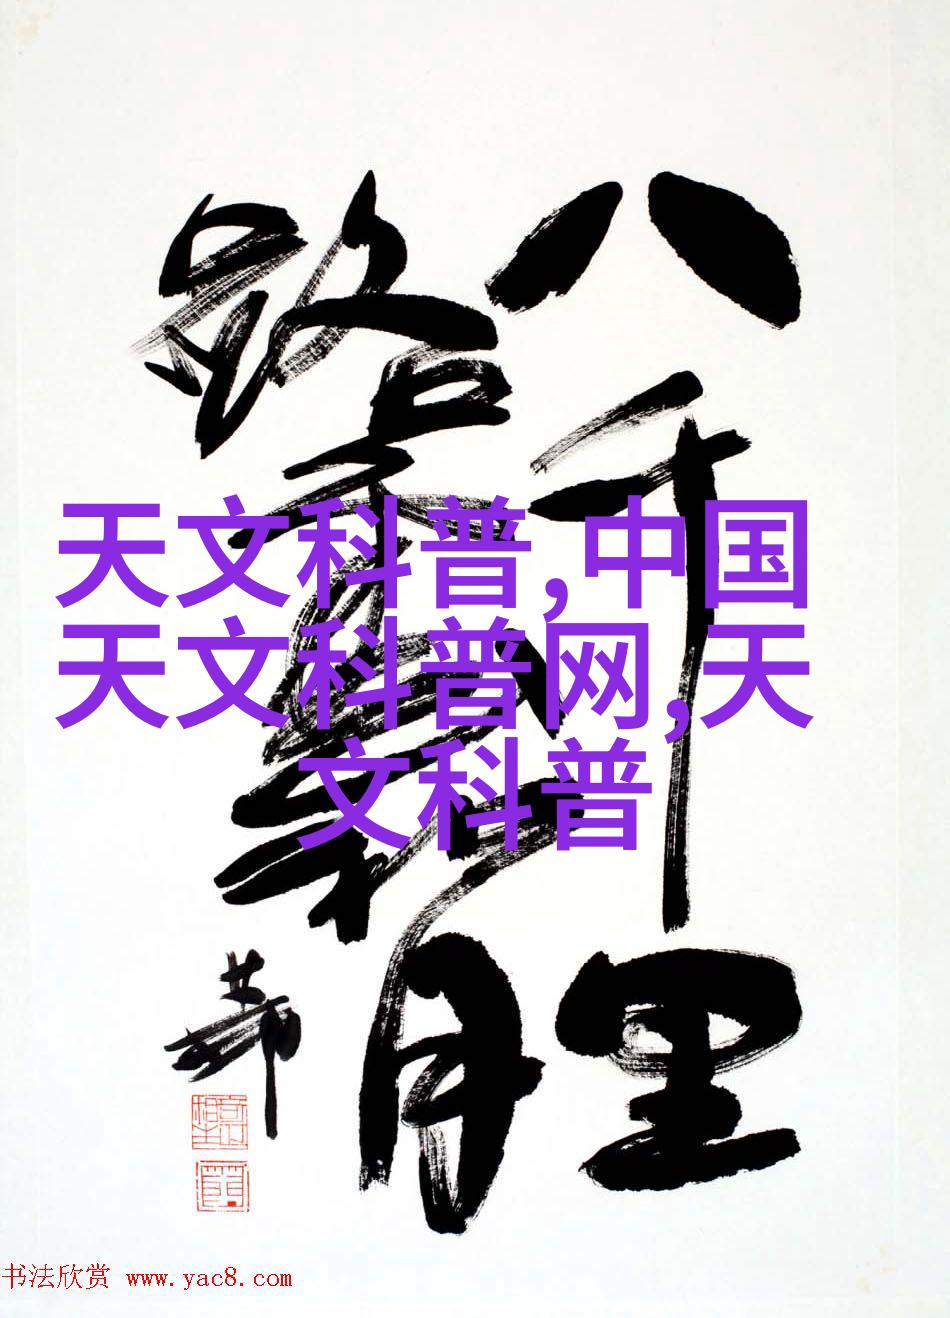 八千里
路云和月
天文科普,中国
天文科普网,天
文科普
书法欣赏 www.yac8.com